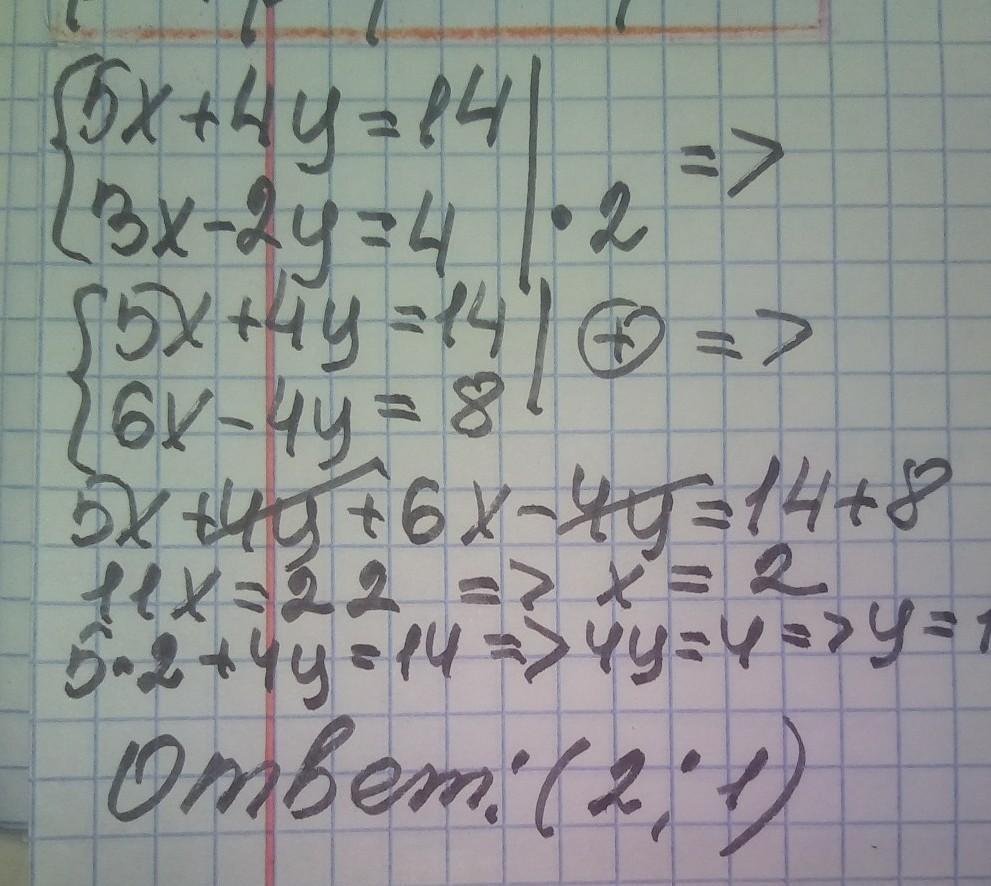 5x+4y=14
3x-2y=4 | ·2 =>
5x+4y=14
6x-4y=8 | ⊕ =>
5x+4y+6x-4y=14+8
11x=22 => x=2
5·2+4y=14=>4y=4=>y=1
Ответ: (2;1)